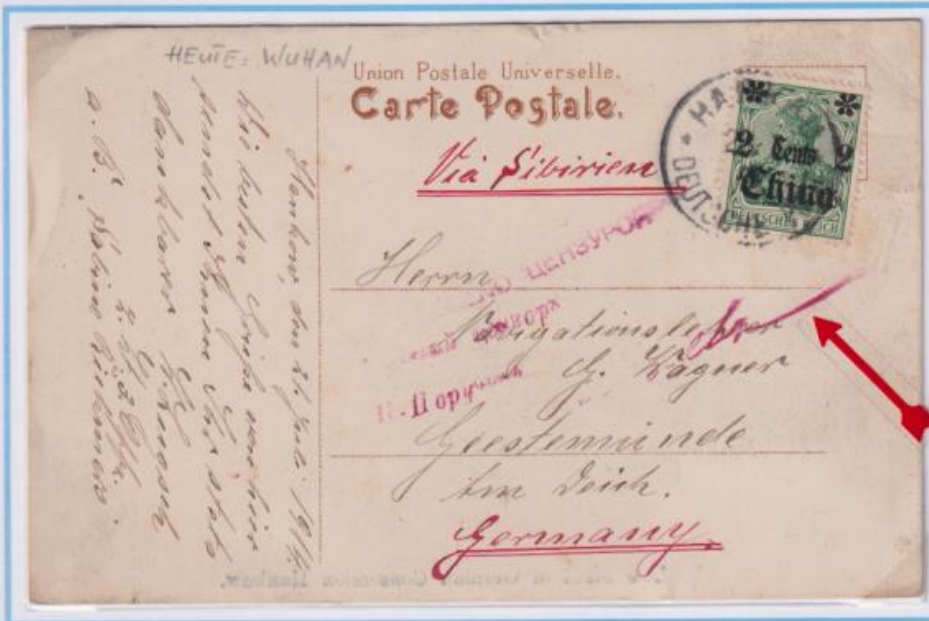 HEUTE: WUHAN
Union Postale Universelle.
Carte Postale.
Via Sibirien
2 Cents 2
China
DEUTSCHES REICH
DEUTSCHE
ЦЕНЗУРОЙ
Herrn
Navigationslehrer
G. Wagner
Geestemünde
Am Deich.
Germany.
Hankow, den 21. Juli 1914.
Die besten Grüße von hier
sendet Ihnen Ihr stets
dankbarer
a. B. „Sabine Rickmers“.